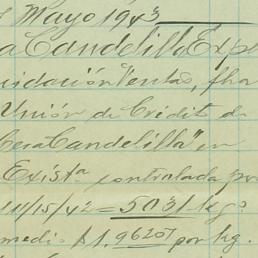 Mayo 1943
a Candelilla Exp
uidación Ventas, fha
Unión de Crédito de
Cera Candelilla" en
Exista controlada por
11/15/42 = 5031 kgs
medi. $1.96257 por kg.